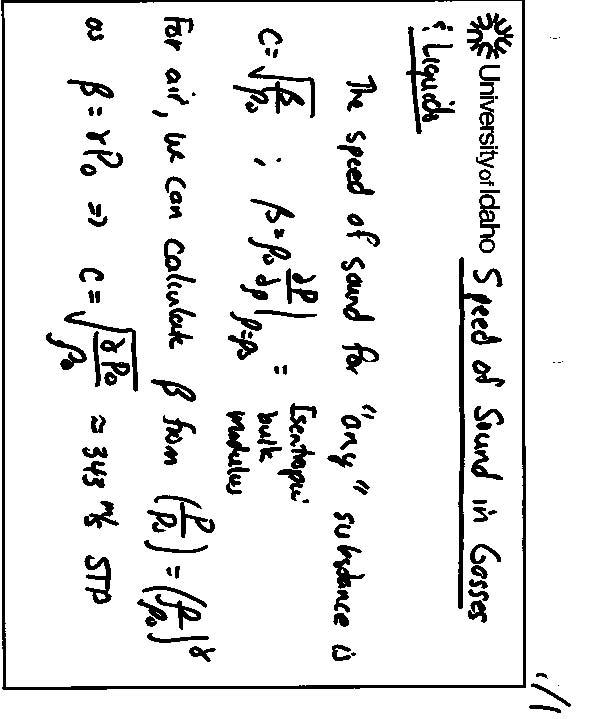 University of Idaho Speed of Sound in Gasses
& Liquids
The speed of sound for "any" substance is
C = √(β/ρ₀) ; β = ρ₀ ∂P/∂ρ |ρ=ρ₀ = Isentropic bulk modulus
For air, we can calculate β from (P/P₀) = (ρ/ρ₀)^γ
as β = γP₀ => C = √(γP₀/ρ₀) ≈ 343 m/s STP